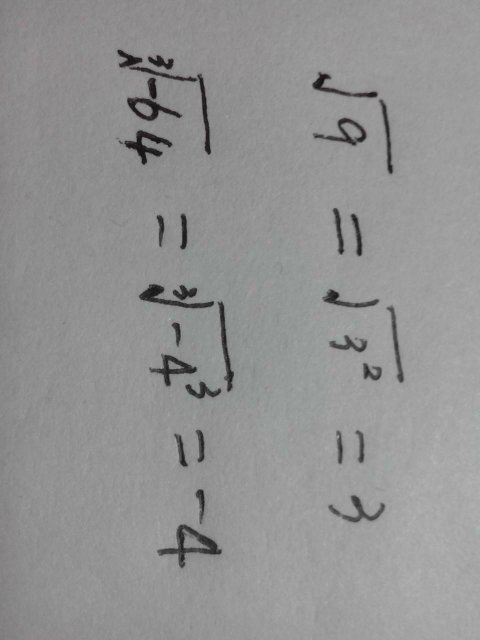 √9 = √3² = 3
∛-64 = ∛-4³ = -4